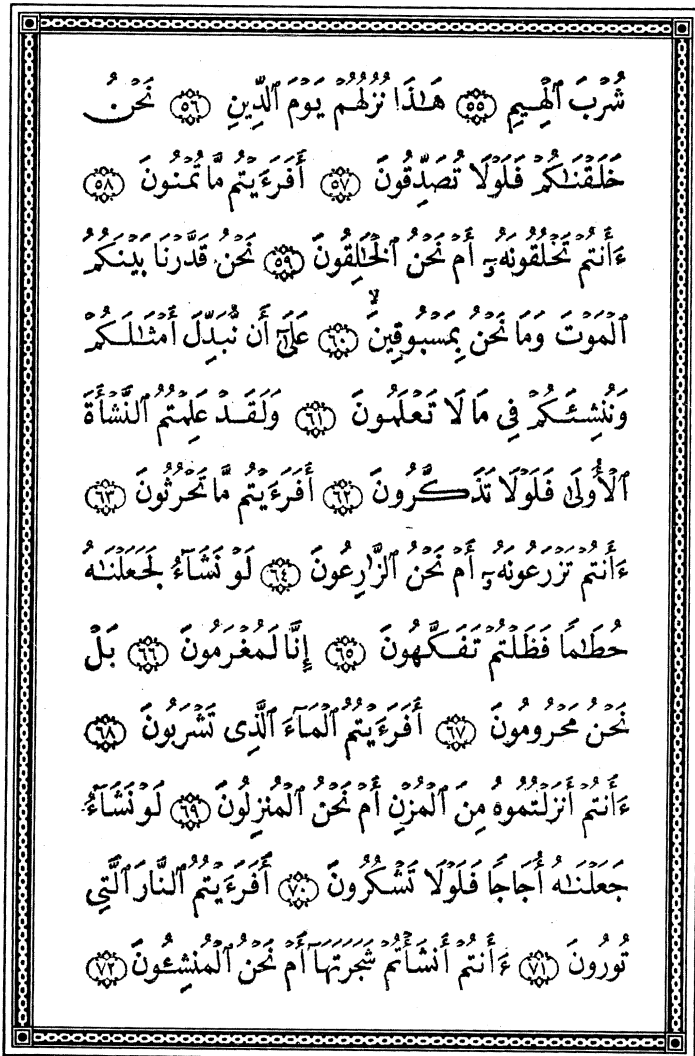 شُرْبَ ٱلْهِيمِ ۝٥٥ هَـٰذَا نُزُلُهُمْ يَوْمَ ٱلدِّينِ ۝٥٦ نَحْنُ
خَلَقْنَـٰكُمْ فَلَوْلَا تُصَدِّقُونَ ۝٥٧ أَفَرَءَيْتُم مَّا تُمْنُونَ ۝٥٨
ءَأَنتُمْ تَخْلُقُونَهُۥٓ أَمْ نَحْنُ ٱلْخَـٰلِقُونَ ۝٥٩ نَحْنُ قَدَّرْنَا بَيْنَكُمُ
ٱلْمَوْتَ وَمَا نَحْنُ بِمَسْبُوقِينَ ۙ ۝٦٠ عَلَىٰٓ أَن نُّبَدِّلَ أَمْثَـٰلَكُمْ
وَنُنشِئَكُمْ فِى مَا لَا تَعْلَمُونَ ۝٦١ وَلَقَدْ عَلِمْتُمُ ٱلنَّشْأَةَ
ٱلْأُولَىٰ فَلَوْلَا تَذَكَّرُونَ ۝٦٢ أَفَرَءَيْتُم مَّا تَحْرُثُونَ ۝٦٣
ءَأَنتُمْ تَزْرَعُونَهُۥٓ أَمْ نَحْنُ ٱلزَّٰرِعُونَ ۝٦٤ لَوْ نَشَآءُ لَجَعَلْنَـٰهُ
حُطَـٰمًا فَظَلْتُمْ تَفَكَّهُونَ ۝٦٥ إِنَّا لَمُغْرَمُونَ ۝٦٦ بَلْ
نَحْنُ مَحْرُومُونَ ۝٦٧ أَفَرَءَيْتُمُ ٱلْمَآءَ ٱلَّذِى تَشْرَبُونَ ۝٦٨
ءَأَنتُمْ أَنزَلْتُمُوهُ مِنَ ٱلْمُزْنِ أَمْ نَحْنُ ٱلْمُنزِلُونَ ۝٦٩ لَوْ نَشَآءُ
جَعَلْنَـٰهُ أُجَاجًا فَلَوْلَا تَشْكُرُونَ ۝٧٠ أَفَرَءَيْتُمُ ٱلنَّارَ ٱلَّتِى
تُورُونَ ۝٧١ ءَأَنتُمْ أَنشَأْتُمْ شَجَرَتَهَآ أَمْ نَحْنُ ٱلْمُنشِـُٔونَ ۝٧٢